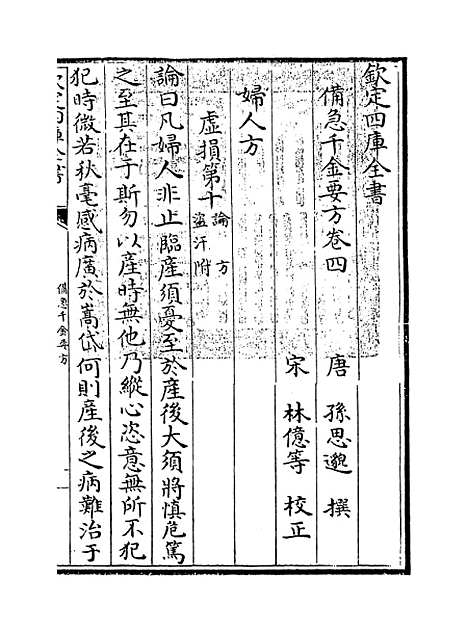 欽定四庫全書
備急千金要方卷四
唐 孫思邈 撰
宋 林億等 校正
婦人方
虛損第十論 方 盜汗附
論曰凡婦人非止臨産須憂至於産後大須將慎危篤
之至其在于斯勿以産時無他乃縱心恣意無所不犯
犯時微若秋毫感病廣於嵩岱何則産後之病難治于
欽定四庫全書
備急千金要方
一